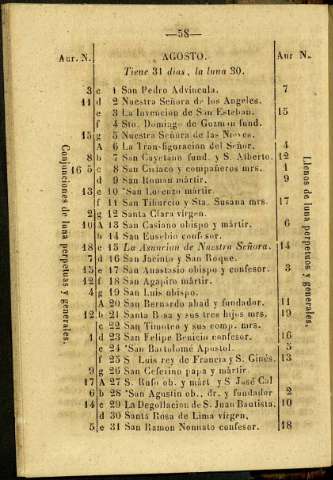 —58—
Aur. N. AGOSTO. Aur N.
Tiene 31 dias, la luna 30.
Conjunciones de luna perpetuas y generales.
Llenos de luna perpetuos y generales.
3 c 1 San Pedro Advíncula. 7
11 d 2 Nuestra Señora de los Angeles.
e 3 La Invencion de San Esteban. 15
f 4 Sto. Domingo de Guzman fund.
15 g 5 Nuestra Señora de las Nieves.
A 6 La Transfiguracion del Señor. 4
8 b 7 San Cayetano fund. y S. Alberto. 12
16 5 c 8 San Ciriaco y compañeros mrs. 1
d 9 San Roman mártir. 9
13 e 10 San Lorenzo mártir.
f 11 San Tiburcio y Sta. Susana mrs. 17
2 g 12 Santa Clara vírgen.
10 A 13 San Casiano obispo y mártir. 6
b 14 San Eusebio confesor.
18 c 15 La Asuncion de Nuestra Señora. 14
7 d 16 San Jacinto y San Roque.
15 e 17 San Anastasio obispo y confesor. 3
12 f 18 San Agapiro mártir
4 g 19 San Luis obispo.
A 20 San Bernardo abad y fundador. 11
12 b 21 Santa Basa y sus tres hijos mrs. 19
c 22 San Timoteo y sus comp. mrs.
1 d 23 San Felipe Benicio confesor. 16
e 24 San Bartolomé Apostol. 5
f 25 S Luis rey de Francia y S. Ginés. 13
9 g 26 San Ceferino papa y mártir
17 A 27 S. Rufo ob. y márt y S José Cal
6 b 28 San Agustin ob., dr. y fundador 2
14 c 29 La Degollacion de S. Juan Bautista. 10
d 30 Santa Rosa de Lima vírgen.
5 e 31 San Ramon Nonnato confesor. 18